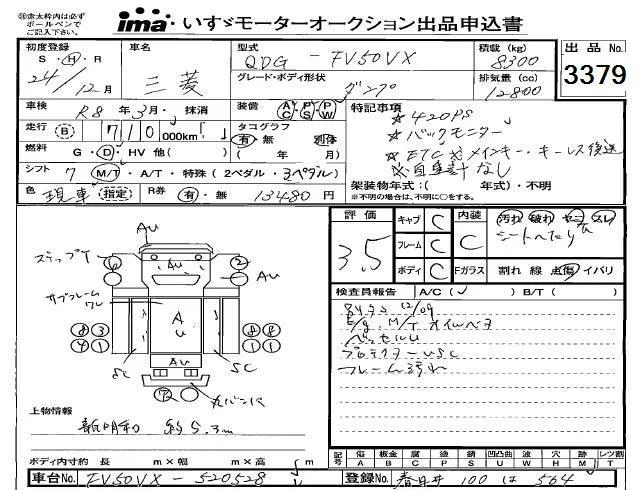 ㊟赤太枠内は必ず
ボールペンで
ご記入下さい。
ima® いすゞモーターオークション出品申込書
初度登録 車名 型式 積載 (kg) 出品No.
S・H・R 三菱 QDG - FV50VX 8300 3379
24/12月 グレード・ボディ形状 排気量 (cc)
ダンプ 12800
車検 R8年3月・抹消 装備 AC PS PW 特記事項
走行 (B) 710,000km「 」 タコグラフ ★420PS
有・無 別体 ★バックモニター
燃料 G・D・HV 他( ) ( 年 月) ★ETC メインキー・キーレス後送
シフト 7 M/T・A/T・特殊(2ペダル・3ペダル) ※自重計なし
色 現車 (指定) R券 有・無 13480円 架装物年式:( 年式)・不明
※不明の場合は、不明に○をする。
評価 キャブ C 内装 C 汚れ 破れ ヤニ スレ
3.5 フレーム C シートへたり
ボディ C Fガラス 割れ 線 点傷 イバリ
Au
ステップT
6 Au 2
Au
サブフレーム
検査員報告 A/C(✓) B/T( )
12/09
E/g. M/T オイル
83 Au 88
41 11
SC Au SC
72
フレーム汚れ
上物情報
新明和 約5.3m
ボディ内寸約 長 m×幅 m×高 m
記号 傷 板金 腐 塗 錆 凹凸曲 波 穴 跡 レツ割
A B C P S U W H M T
車台No. FV50VX - 520528 登録No. 春日井 100 は 564